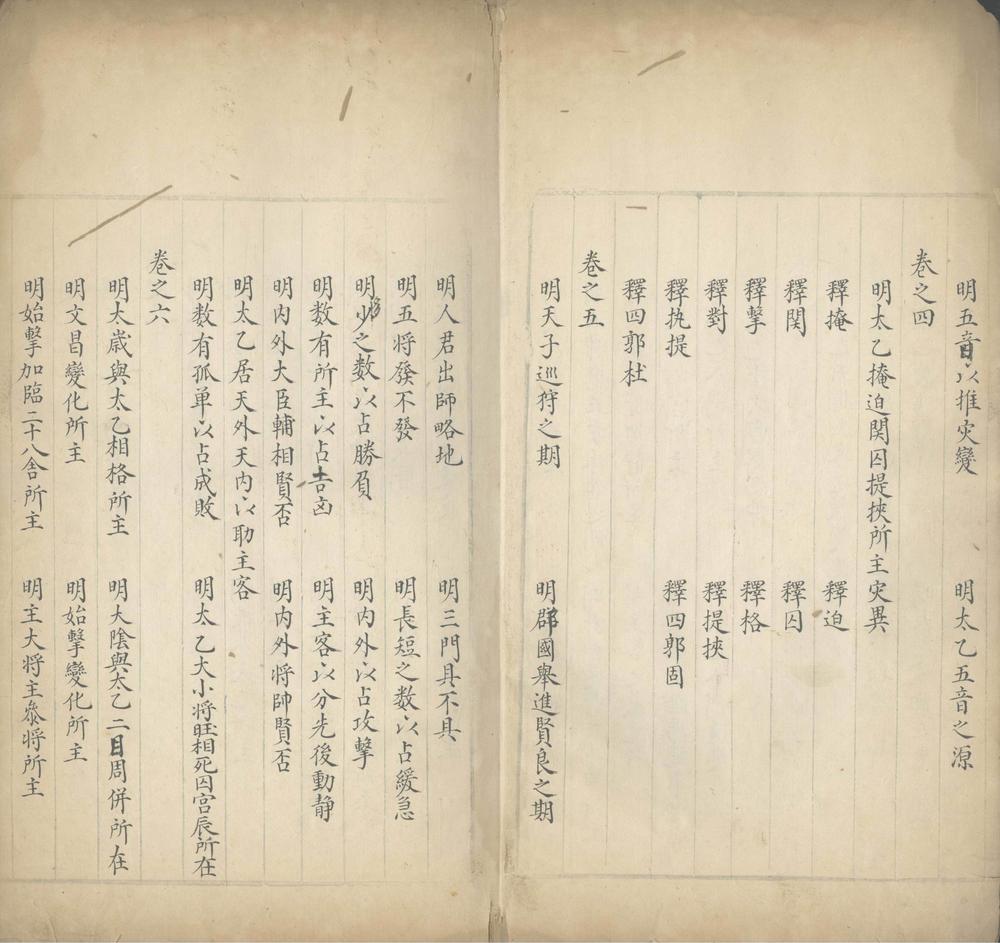 明五音以推灾變　明太乙五音之源
卷之四
明太乙掩迫関囚提挾所主灾異
釋掩　釋迫
釋関　釋囚
釋擊　釋格
釋對　釋提挾
釋执提　釋四郭固
釋四郭杜
卷之五
明天子巡狩之期　明辟國舉進賢良之期
明人君出師略地　明三門具不具
明五将發不發　明長短之数以占緩急
明多少之数以占勝負　明内外以占攻擊
明数有所主以占吉凶　明主客以分先後動静
明内外大臣輔相賢否　明内外将帥賢否
明太乙居天外天内以助主客
明数有孤单以占成敗　明太乙大小将旺相死囚宫辰所在
卷之六
明太歳與太乙相格所主　明大陰與太乙二目周併所在
明文昌變化所主　明始擊變化所主
明始擊加臨二十八舎所主　明主大将主叅将所主